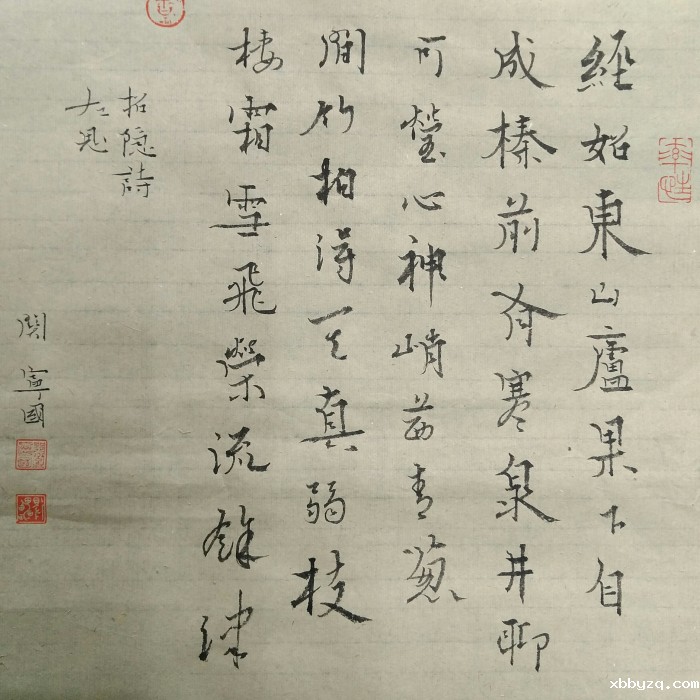 經始東山廬果下自
成榛前有寒泉井聊
可瑩心神峭茜青蔥
間竹柏得其真弱枝
棲霜雪飛榮流餘津
招隐詩
左思
関寧國
xbbyzq.com